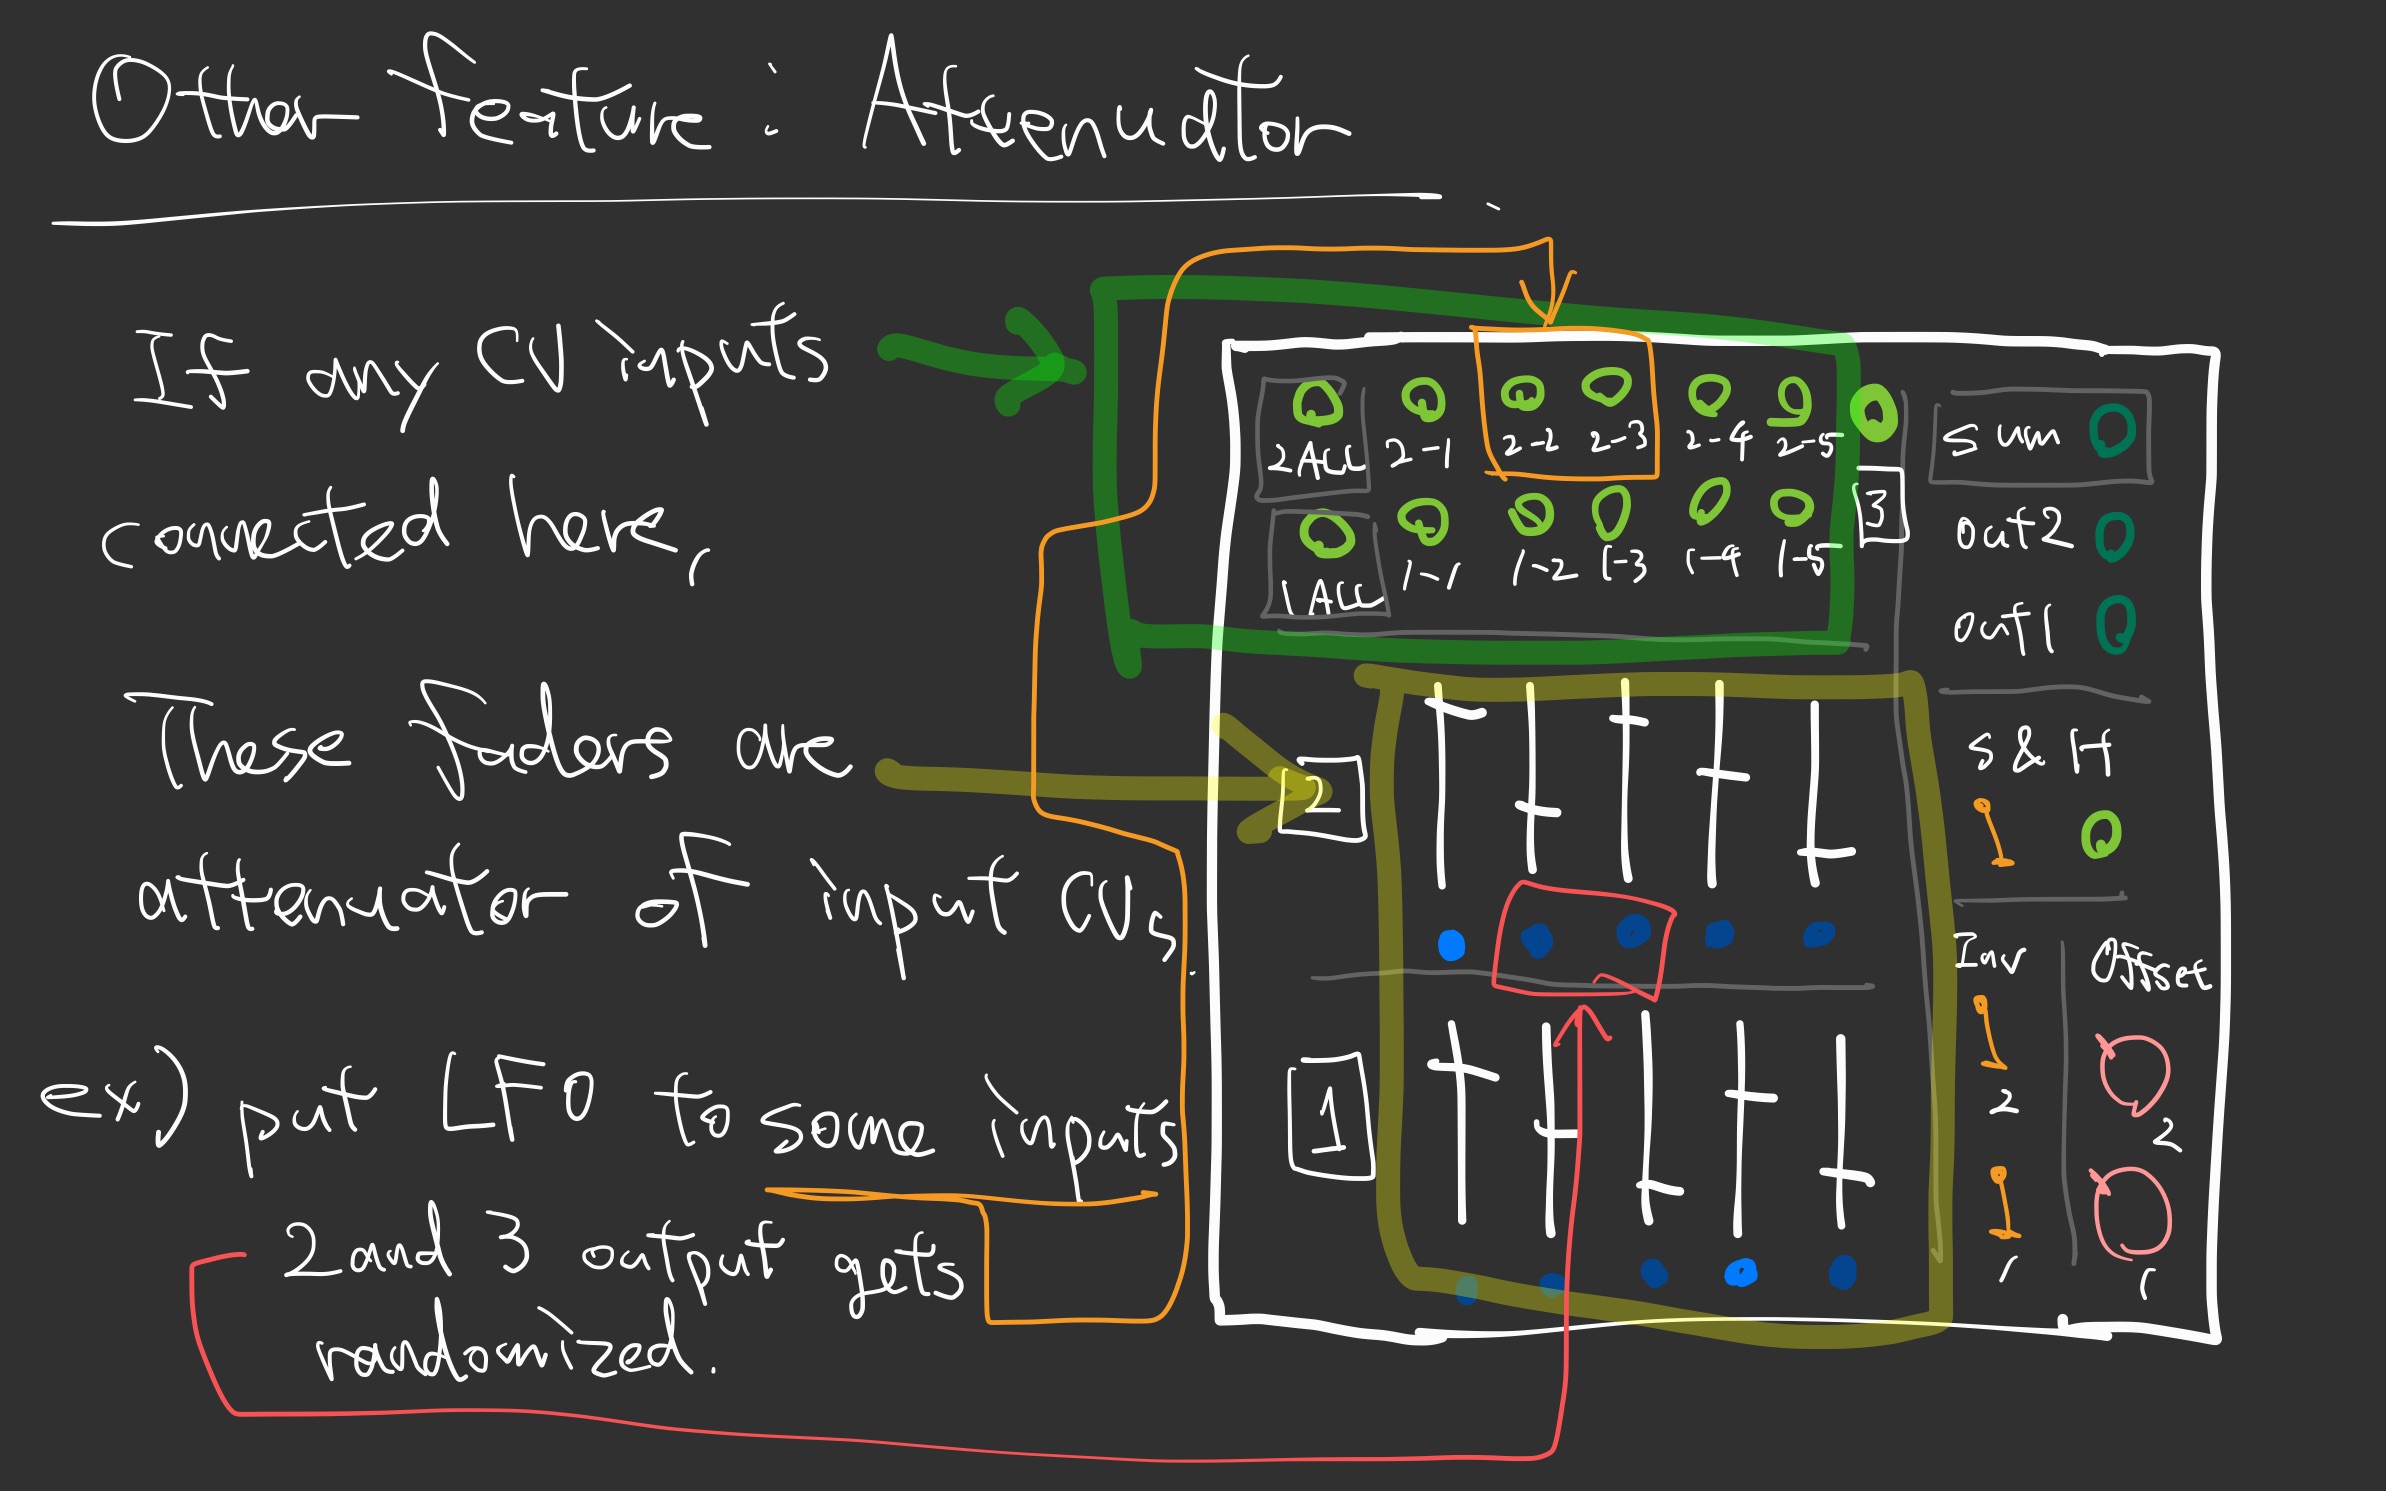 Other feature : Attenuator
If any CV inputs
connected here,
These faders are
attenuator of input CVs.
ex) put LFO to some inputs
2 and 3 output gets
randomized.
2ALL 2-1 2-2 2-3 2-4 2-5
3
1ALL 1-1 1-2 1-3 1-4 1-5
Sum
out2
out1
2
S&H
1
Inv
2
1
Offset
2
1